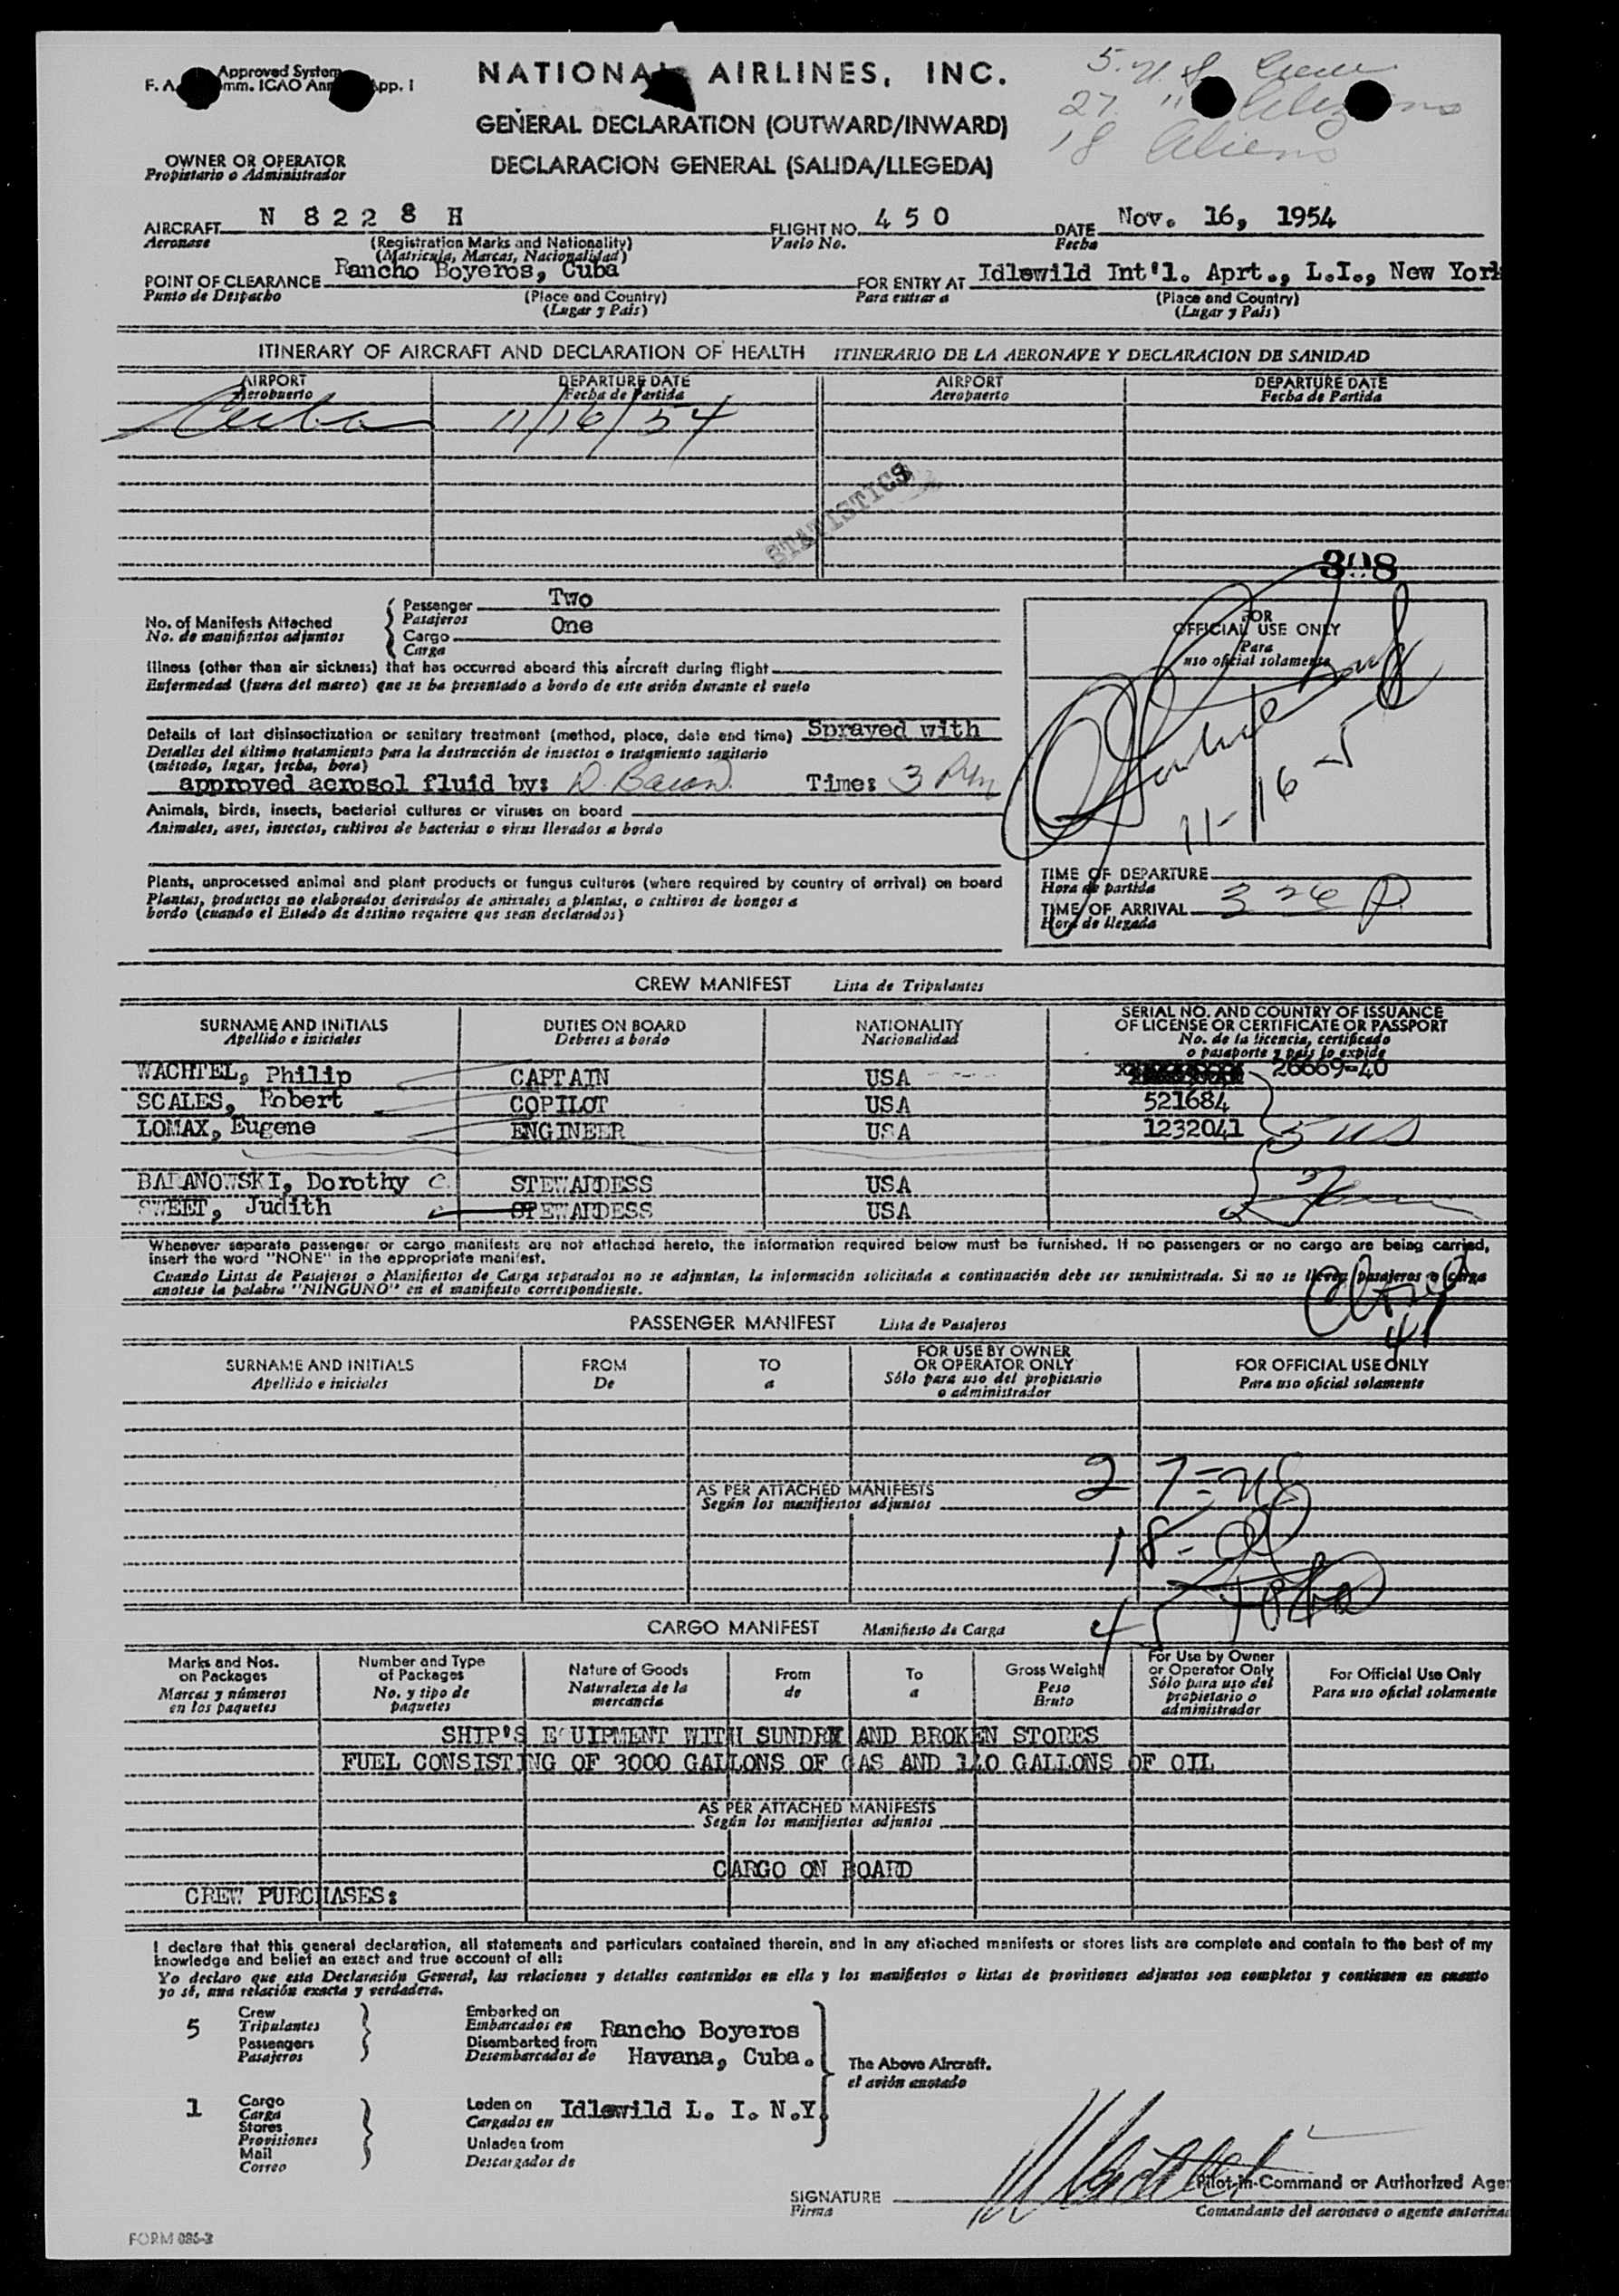 Approved System
F. A. mm. ICAO Ann App. I
NATIONAL AIRLINES, INC.
GENERAL DECLARATION (OUTWARD/INWARD)
DECLARACION GENERAL (SALIDA/LLEGEDA)
5 U.S. Crew
27 "
18 Aliens
OWNER OR OPERATOR
Propietario o Administrador
AIRCRAFT N 8228 H FLIGHT NO. 450 DATE Nov. 16, 1954
Aeronave (Registration Marks and Nationality) Vuelo No. Fecha
(Matricula, Marcas, Nacionalidad)
POINT OF CLEARANCE Rancho Boyeros, Cuba FOR ENTRY AT Idlewild Int'l. Aprt., L.I., New York
Punto de Despacho (Place and Country) Para entrar a (Place and Country)
(Lugar y Pais) (Lugar y Pais)
ITINERARY OF AIRCRAFT AND DECLARATION OF HEALTH ITINERARIO DE LA AERONAVE Y DECLARACION DE SANIDAD
AIRPORT DEPARTURE DATE AIRPORT DEPARTURE DATE
Aeropuerto Fecha de Partida Aeropuerto Fecha de Partida
Cuba 11/16/54
STATISTICS
308
No. of Manifests Attached Passenger Two
No. de manifiestos adjuntos Pasajeros
Cargo One
Carga
Illness (other than air sickness) that has occurred aboard this aircraft during flight
Enfermedad (fuera del mareo) que se ha presentado a bordo de este avión durante el vuelo
Details of last disinsectization or sanitary treatment (method, place, date and time) Sprayed with
Detalles del último tratamiento para la destrucción de insectos o tratamiento sanitario
(método, lugar, fecha, hora)
approved aerosol fluid by: D. Bacon Time: 3 PM
Animals, birds, insects, bacterial cultures or viruses on board
Animales, aves, insectos, cultivos de bacterias o virus llevados a bordo
Plants, unprocessed animal and plant products or fungus cultures (where required by country of arrival) on board
Plantas, productos no elaborados derivados de animales a plantas, o cultivos de hongos a
bordo (cuando el Estado de destino requiere que sean declarados)
FOR
OFFICIAL USE ONLY
Para
uso oficial solamente
11-16-5
TIME OF DEPARTURE
Hora de partida
TIME OF ARRIVAL 3 26 P
Hora de llegada
CREW MANIFEST Lista de Tripulantes
SURNAME AND INITIALS DUTIES ON BOARD NATIONALITY SERIAL NO. AND COUNTRY OF ISSUANCE
Apellido e iniciales Deberes a bordo Nacionalidad OF LICENSE OR CERTIFICATE OR PASSPORT
No. de la licencia, certificado
o pasaporte y pais lo expide
WACHTEL, Philip CAPTAIN USA 26669-40
SCALES, Robert COPILOT USA 521684
LOMAX, Eugene ENGINEER USA 1232041
5 US
BARANOWSKI, Dorothy C. STEWARDESS USA
SWEET, Judith STEWARDESS USA
Whenever separate passenger or cargo manifests are not attached hereto, the information required below must be furnished. If no passengers or no cargo are being carried,
insert the word "NONE" in the appropriate manifest.
Cuando Listas de Pasajeros o Manifiestos de Carga separados no se adjuntan, la información solicitada a continuación debe ser suministrada. Si no se llevan pasajeros o carga
anotese la palabra "NINGUNO" en el manifiesto correspondiente.
PASSENGER MANIFEST Lista de Pasajeros
SURNAME AND INITIALS FROM TO FOR USE BY OWNER FOR OFFICIAL USE ONLY
Apellido e iniciales De a OR OPERATOR ONLY Para uso oficial solamente
Sólo para uso del propietario
o administrador
AS PER ATTACHED MANIFESTS
Según los manifiestos adjuntos
27 = US
18 -
45
CARGO MANIFEST Manifiesto de Carga
Marks and Nos. Number and Type Nature of Goods From To Gross Weight For Use by Owner For Official Use Only
on Packages of Packages Naturaleza de la de a Peso or Operator Only Para uso oficial solamente
Marcas y números No. y tipo de mercancia Bruto Sólo para uso del
en los paquetes paquetes propietario o
administrador
SHIP'S EQUIPMENT WITH SUNDRY AND BROKEN STORES
FUEL CONSISTING OF 3000 GALLONS OF GAS AND 140 GALLONS OF OIL
AS PER ATTACHED MANIFESTS
Según los manifiestos adjuntos
CARGO ON BOARD
CREW PURCHASES:
I declare that this general declaration, all statements and particulars contained therein, and in any attached manifests or stores lists are complete and contain to the best of my
knowledge and belief an exact and true account of all:
Yo declaro que esta Declaración General, las relaciones y detalles contenidos en ella y los manifiestos o listas de provisiones adjuntos son completos y contienen en cuanto
yo sé, una relación exacta y verdadera.
5 Crew Embarked on
Tripulantes Embarcados en Rancho Boyeros
Passengers Disembarked from
Pasajeros Desembarcados de Havana, Cuba.
The Above Aircraft.
el avión anotado
1 Cargo Laden on Idlewild L. I. N.Y.
Carga Cargados en
Stores
Provisiones Unladen from
Mail Descargados de
Correo
SIGNATURE Pilot-in-Command or Authorized Age
Firma Comandante del aeronave o agente autoriza
FORM 086-3